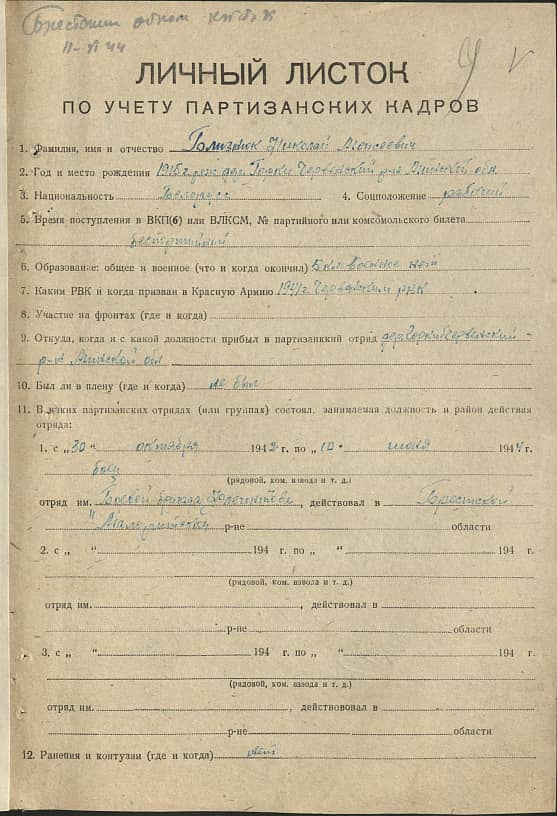 Брестский обком КП(б)Б
ЛИЧНЫЙ ЛИСТОК
ПО УЧЕТУ ПАРТИЗАНСКИХ КАДРОВ
1. Фамилия, имя и отчество Николай Моисеевич
2. Год и место рождения 1915 г. рож. дер. Червенский р-н Минской обл.
3. Национальность Белорусс 4. Соцположение рабочий
5. Время поступления в ВКП(б) или ВЛКСМ, № партийного или комсомольского билета
беспартийный
6. Образование: общее и военное (что и когда окончил) 5 кл военное нет
7. Каким РВК и когда призван в Красную Армию 1941 г. Червенским рвк
8. Участие на фронтах (где и когда)
9. Откуда, когда и с какой должности прибыл в партизанкий отряд дер. Горки Червенский
р-н Минской обл
10. Был ли в плену (где и когда) не был
11. В каких партизанских отрядах (или группах) состоял, занимаемая должность и район действия
отряда:
1. с „30" октября 1942 г. по „10" июля 1944 г.
боец
(рядовой, ком. взвода и т. д.)
отряд им. бригада , действовал в Брестской
Малоритском р-не области
2. с „ " 194 г. по „ " 194 г.
(рядовой, ком. взвода и т. д.)
отряд им. , действовал в
р-не области
3, с „ " 194 г. по „ " 194 г.
(рядовой, ком. взвода и т. д.)
отряд им. , действововал в
р-не области
12. Ранения и контузии (где и когда) нет